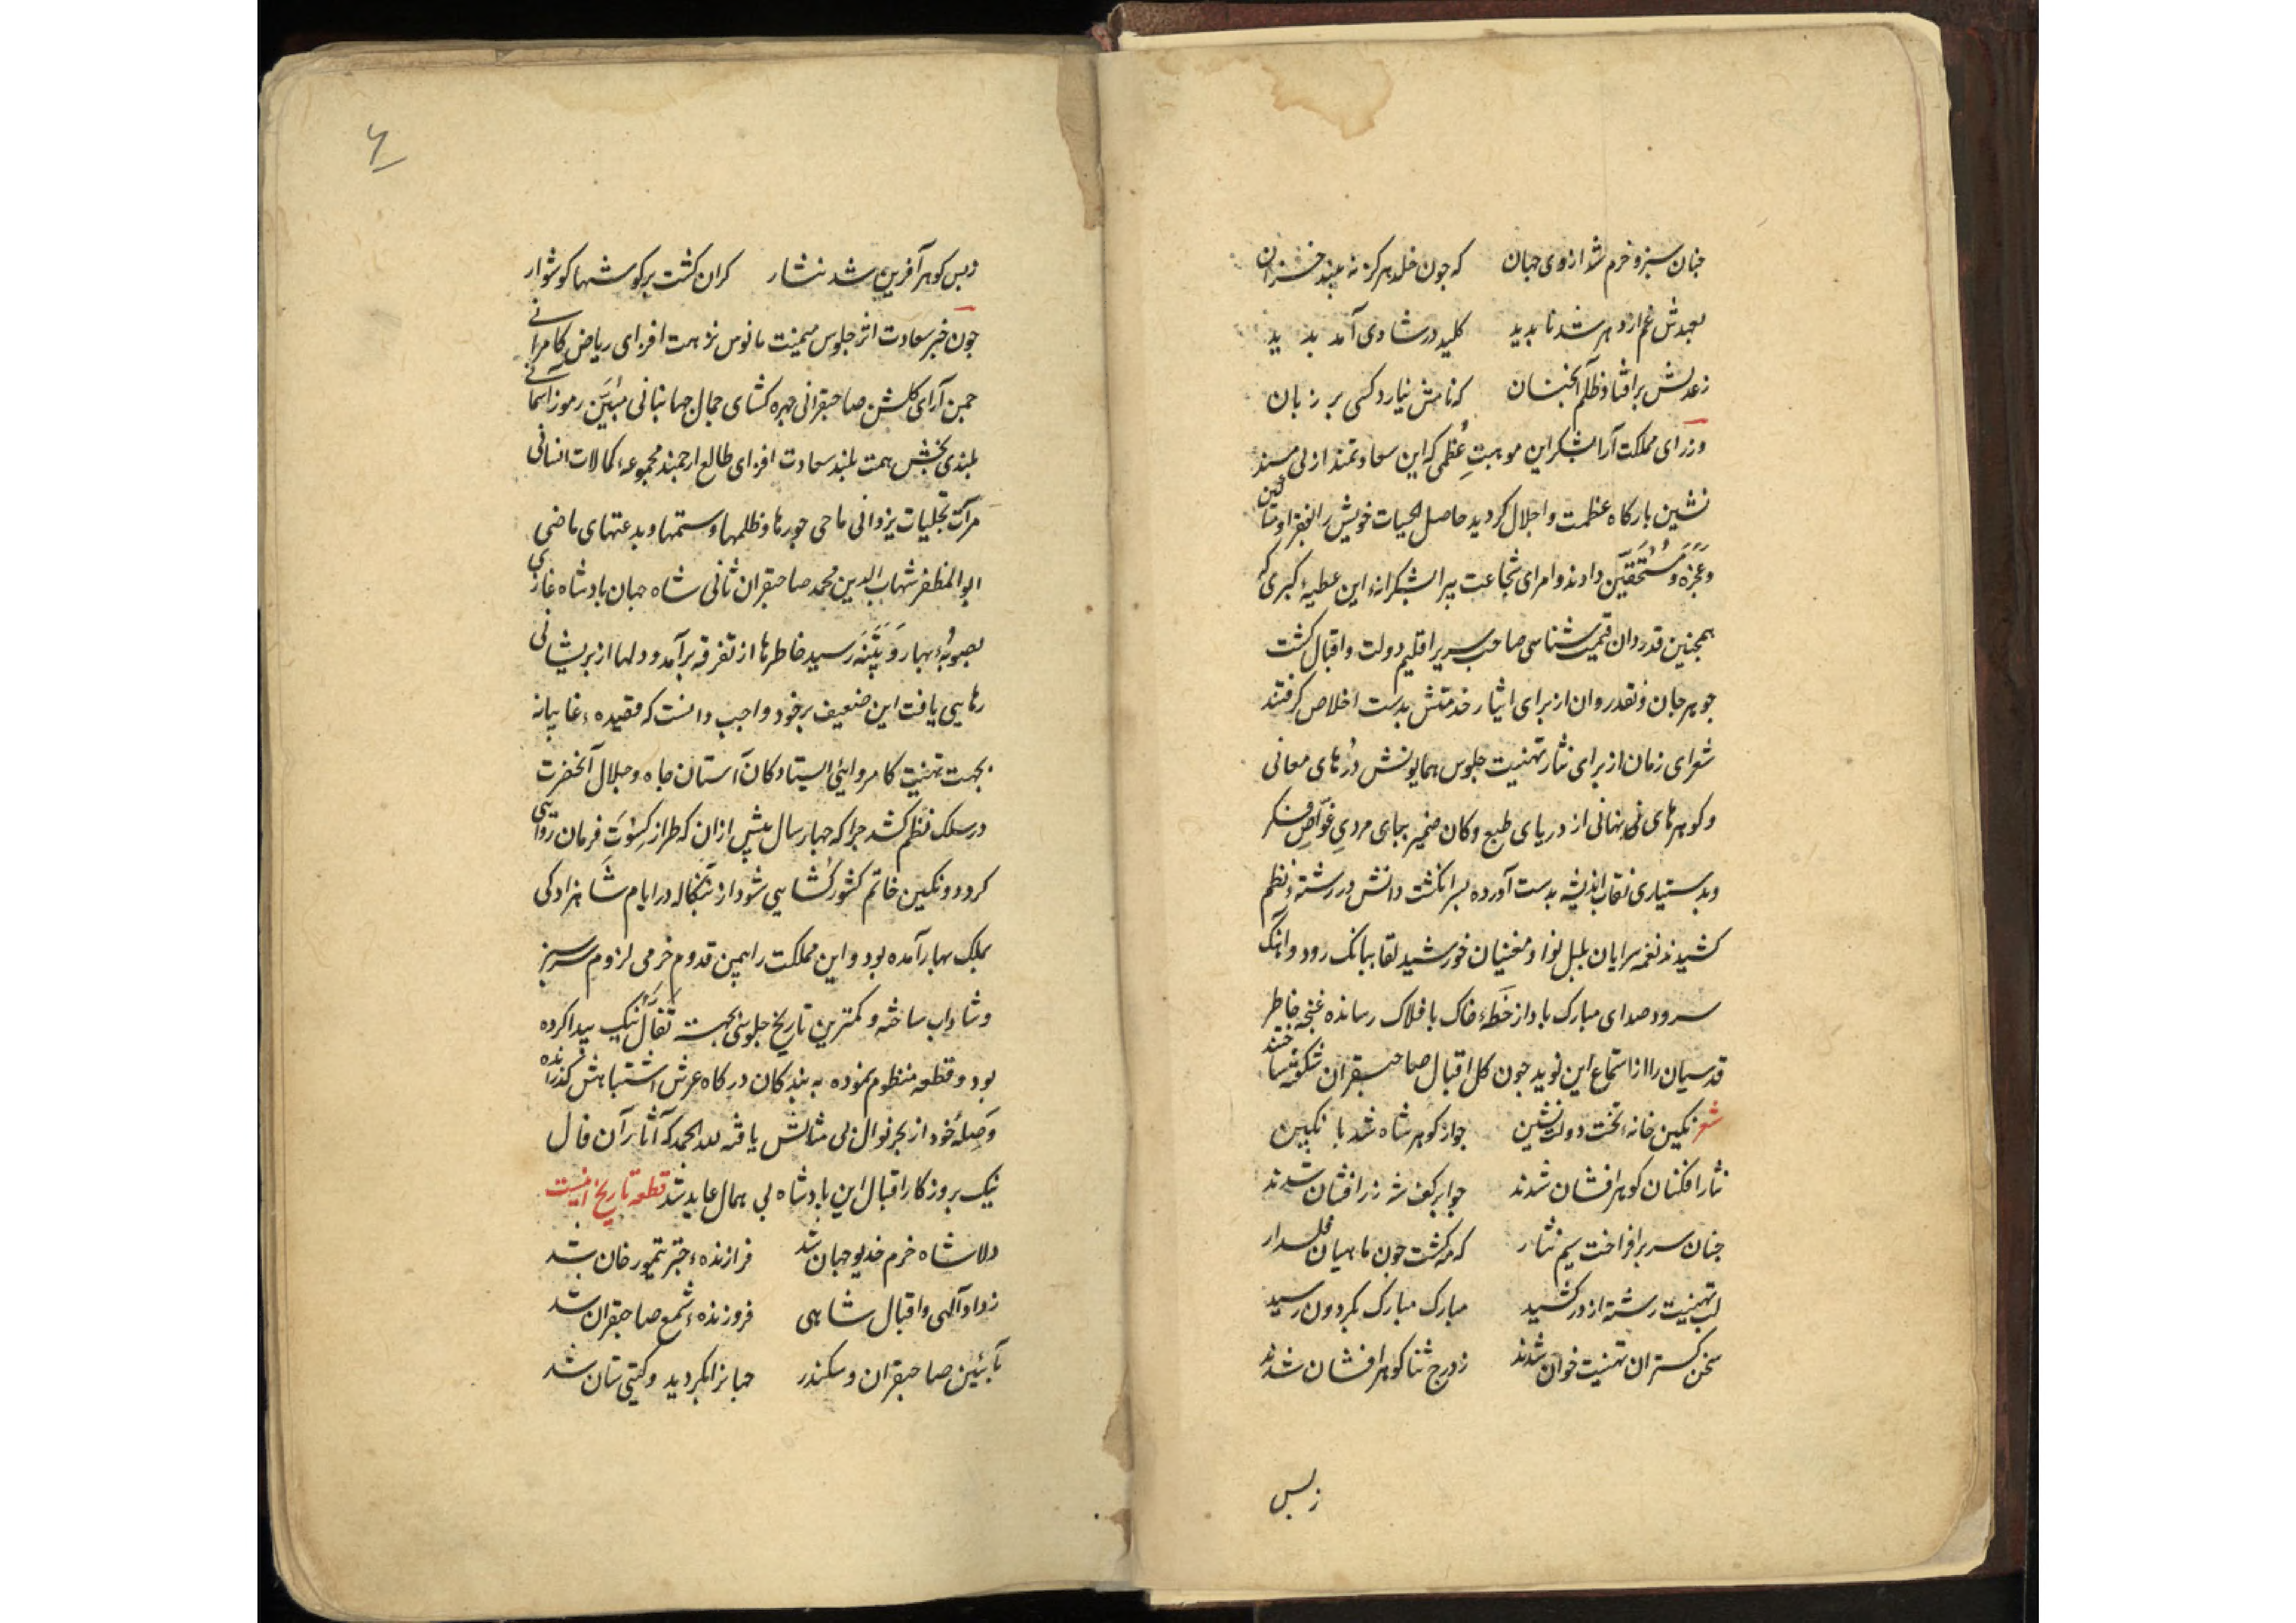 چنان سبز و خرم شد از وی جهان که چون خلد هرگز نه بیند خزان
بعهدش غم از دهر شد ناپدید کلید در شادی آمد پدید
ز عدلش برافتاد ظلم آنچنان که نامش نیارد کسی بر زبان
وزرای مملکت آرا بشکر این موهبتِ عُظمی که این سعادتمند ازلی مسند
نشین بارگاه عظمت و اجلال گردید حاصل الحیات خویش را بفقرا و مساکین
و عَجَزَه و مُستَحَقّین دادند و امرای شجاعت پیرا بشکرانهٔ این عطیهٔ کبری که
همچنین قدردان قیمت شناسی صاحب سریر اقلیم دولت و اقبال گشت
جوهر جان و نقد روان از برای ایثار خدمتش بدست اخلاص گرفتند
شعرای زمان از برای نثار تهنیت جلوس همایونش دُرهای معانی
و گوهرهای نهانی از دریای طبع و کان ضمیر بپای مردیِ غوّاصِ فکر
و بدستیاری نقاب اندیشه بدست آورده بسر انگشت دانش در رشتهٔ نظم
کشیدند نغمه سرایان بلبل نوا و مغنیان خورشید لقا ببانگ رود و آهنگ
سرود صدای مبارک باد از خَطّهٔ خاک بافلاک رسانده غنچهٔ خاطر
قدسیان را از استماع این نوید چون گل اقبال صاحبقران شگفته ساختند
شعر نگین خانهٔ تخت دولت نشین چو از گوهر شاه شد با نگین
نثار افکنان گوهر افشان شدند چو ابر کف شه زر افشان شدند
چنان سر برافراخت سیم نثار که مه گشت چون ماهیان فلسدار
لب تهنیت رشته از در کشید مبارک مبارک بگردون رسید
سخن گستران تهنیت خوان شدند ز درج ثنا گوهر افشان شدند
زبس
۶
زبس گوهر آفرین شد نثار گران گشت بر گوشها گوشوار
چون خبر سعادت اثر جلوس میمنت مانوس نزهت افزای ریاض کامرانی
چمن آرای گلشن صاحبقرانی چهره گشای جمال جهانبانی مبیّن رموز آسمانی
بلندی بخش همت بلند سعادت افزای طالع ارجمند مجموعهٔ کمالات انسانی
مرآت تجلیات یزدانی ماحی جورها و ظلمها و ستمها و بدعتهای ماضی
ابو المظفر شهاب الدین محمد صاحبقران ثانی شاه جهان بادشاه غازی
بصوبهٔ بهار و پَتَنَه رسید خاطرها از تفرقه برآمد و دلها از پریشانی
رهایی یافت این ضعیف بر خود واجب دانست که قصیدهٔ غایبانه
بجهت تهنیت کامروائی ایستادگان آستان جاه و جلال آنحضرت
در سلک نظم کشد چرا که چهار سال پیش ازان که طراز کِسوَتِ فرمان روایی
گردد و نگین خاتم کشور گشایی شود از بنگاله در ایام شاهزادگی
بملک بهار آمده بود و این مملکت را بهمین قدوم خرمی لزوم سرسبز
و شاداب ساخته و کمترین تاریخ جلوسی بجهت تفأل نیک پیدا کرده
بود و قطعه منظوم نموده به بندگان درگاه عرش اشتباهش گذرانده
و صلهٔ خود از بحر نوال بی مثالش یافته لله الحمد که آثار آن فال
نیک بروزگار اقبال این بادشاه بی همال عاید شد قطعه تاریخ اینست
دلا شاه خرم خدیو جهان شد فرازندهٔ چتر تیمور خان شد
ز داد آلهی و اقبال شاهی فروزندهٔ شمع صاحبقران شد
بآئین صاحبقران و سکندر جهانرا بگردید و گیتی ستان شد